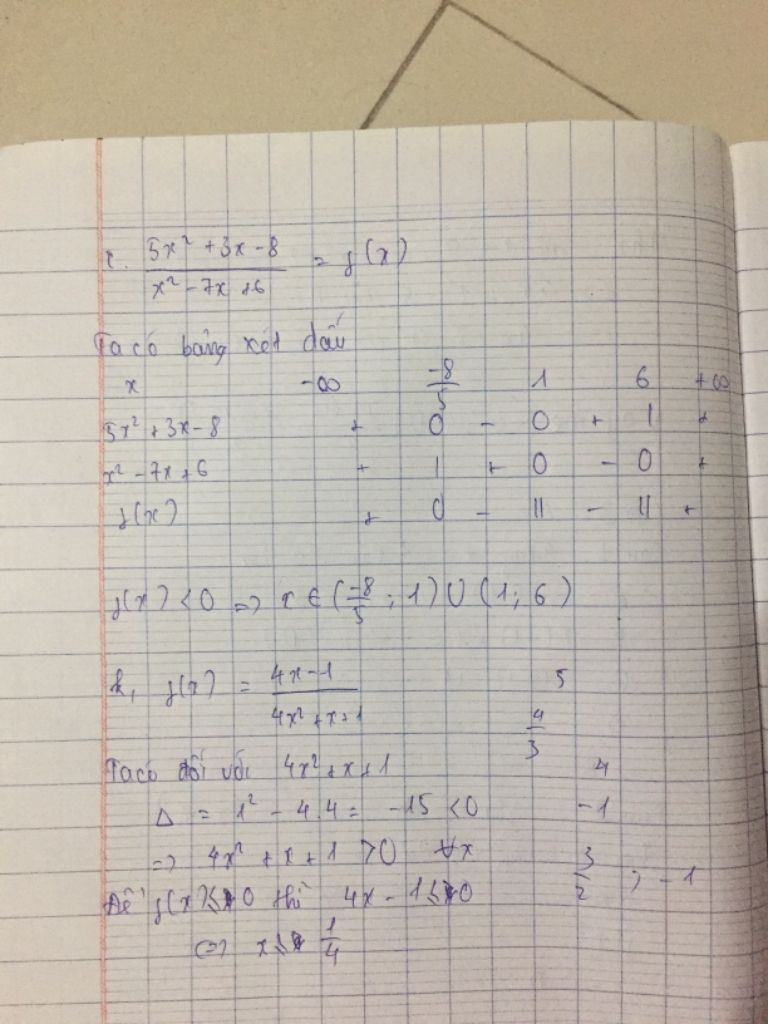 5x² + 3x - 8 / x² - 7x + 6 = f(x)
Ta có bảng xét dấu
x -∞ -8/5 1 6 +∞
5x² + 3x - 8 + 0 - 0 + | +
x² - 7x + 6 + | + 0 - 0 +
f(x) + 0 - || - || +
f(x) < 0 => x ∈ (-8/5 ; 1) ∪ (1 ; 6)
k, f(x) = 4x - 1 / 4x² + x + 1
5
4/3
Ta có đối với 4x² + x + 1
4
Δ = 1² - 4.4 = -15 < 0
-1
=> 4x² + x + 1 > 0 ∀x
3/2 ; -1
Để f(x) ≤ 0 thì 4x - 1 ≤ 0
<=> x ≤ 1/4